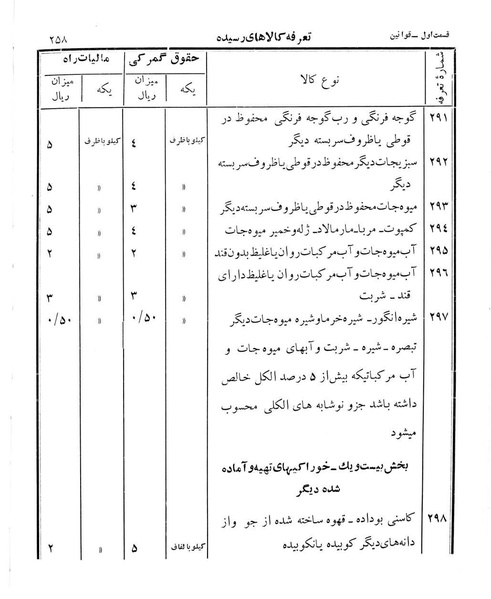 قسمت اول ــ قوانین تعرفه کالاهای رسیده ۲۵۸
شمارهٔ تعرفه نوع کالا حقوق گمرکی مالیات راه
یکه میزان ریال یکه میزان ریال
۲۹۱ گوجه فرنگی و رب گوجه فرنگی محفوظ در
قوطی یا ظروف سربسته دیگر کیلو باظرف ٤ کیلو باظرف ۵
۲۹۲ سبزیجات دیگر محفوظ در قوطی یا ظروف سربسته
دیگر » ٤ » ۵
۲۹۳ میوه‌جات محفوظ در قوطی یا ظروف سربسته دیگر » ۳ » ۵
۲۹٤ کمپوت ــ مربا ــ مارمالاد ــ ژله و خمیر میوه جات » ٤ » ۵
۲۹۵ آب میوه جات و آب مرکبات روان یا غلیظ بدون قند » ۲ » ۲
۲۹۶ آب میوه جات و آب مرکبات روان یا غلیظ دارای
قند ــ شربت » ۳ » ۳
۲۹۷ شیره انگور ــ شیره خرما و شیره میوه جات دیگر » ۰/۵۰ » ۰/۵۰
تبصره ــ شیره ــ شربت و آبهای میوه جات و
آب مرکباتیکه بیش از ۵ درصد الکل خالص
داشته باشد جزو نوشابه های الکلی محسوب
میشود
بخش بیست و یك ــ خوراکیهای تهیه و آماده
شده دیگر
۲۹۸ کاسنی بوداده ــ قهوه ساخته شده از جو و از
دانه‌های دیگر کوبیده یا نکوبیده کیلو با لفاف ۵ » ۲